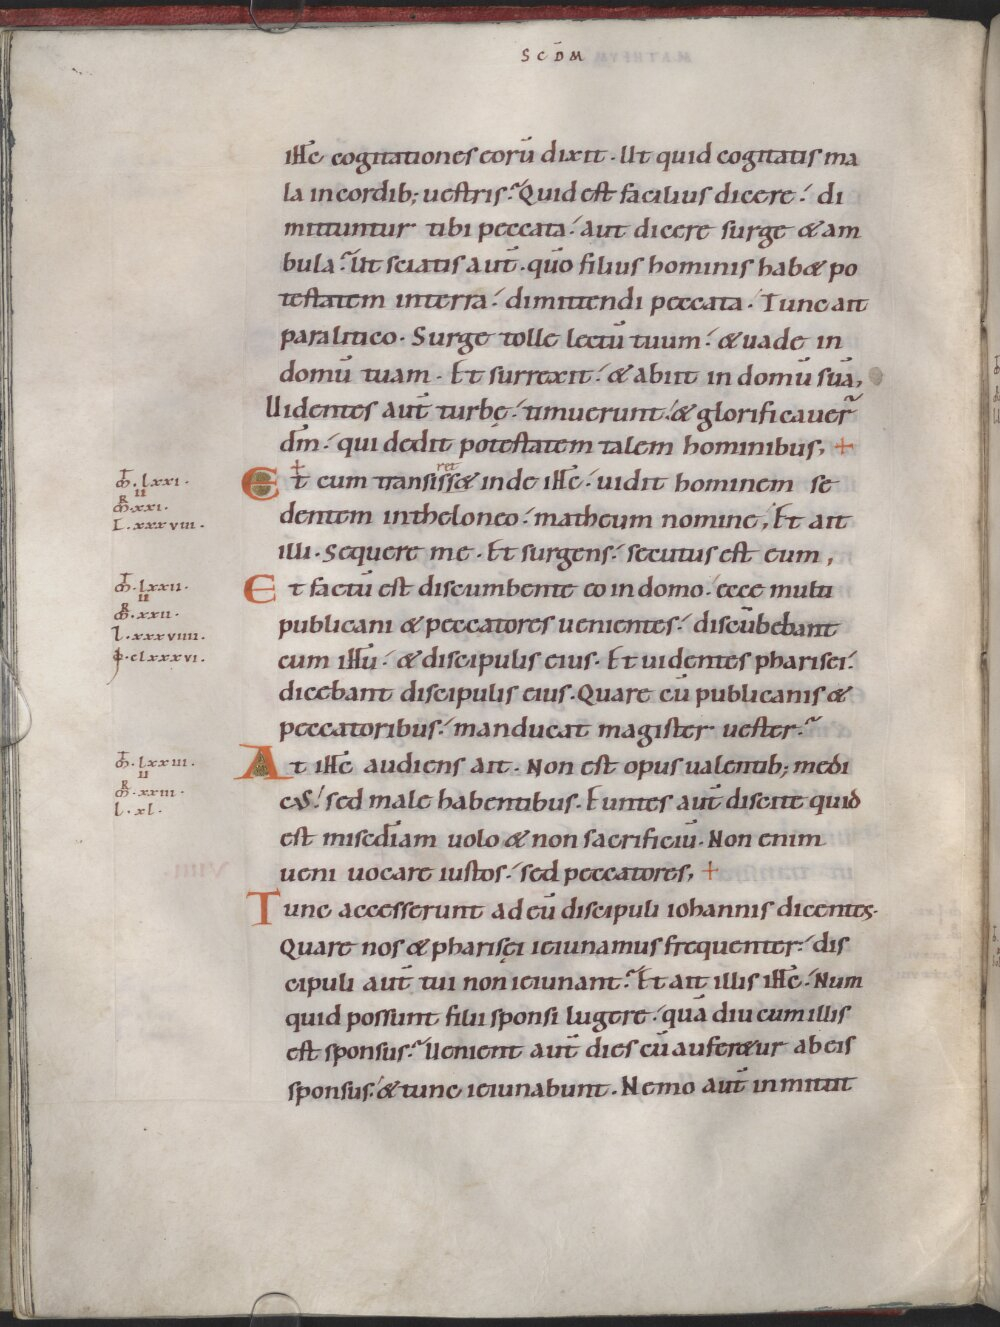 SCDM̄
ihc̄ cogitationes eorū dixit. Ut quid cogitatis ma
la in cordib; uestris? Quid est facilius dicere. di
mittuntur tibi peccata. aut dicere surge & am
bula? Ut sciatis aut̄. quō filius hominis hab& po
testatem in terra. dimittendi peccata. Tunc ait
paralitico. Surge tolle lectū tuum. & uade in
domū tuam. Et surrexit. & abiit in domū suā,
Uidentes aut̄ turbę. timuerunt. & glorificauer̄
dm̄. qui dedit potestatem talem hominibus, +
m̄. lxxi.
II
m̄. xxi.
L. xxxviii.
Et cum transiss& inde ihc̄. uidit hominem se
ret
dentem in theloneo. matheum nomine, Et ait
illi. Sequere me. Et surgens. secutus est eum,
m̄. lxxii.
II
m̄. xxii.
l. xxxviiii.
clxxxvi.
Et factū est discumbente eo in domo. ecce multi
publicani & peccatores uenientes. discūbebant
cum ihū. & discipulis eius. Et uidentes pharisei.
dicebant discipulis eius. Quare cū publicanis &
peccatoribus. manducat magister uester?
m̄. lxxiii.
II
m̄. xxiii.
l. xl.
At ihc̄ audiens ait. Non est opus ualentib; medi
cus. sed male habentibus. Euntes aut̄ discite quid
est miscd̄iam uolo & non sacrificiū. Non enim
ueni uocare iustos. sed peccatores, +
Tunc accesserunt ad eū discipuli iohannis dicentes.
Quare nos & pharisęi ieiunamus frequenter. dis
cipuli aut̄ tui non ieiunant? Et ait illis ihc̄. Num
quid possunt filii sponsi lugere. quādiu cum illis
est sponsus? Uenient aut̄ dies cū aufer&ur ab eis
sponsus. & tunc ieiunabunt. Nemo aut̄ inmittit